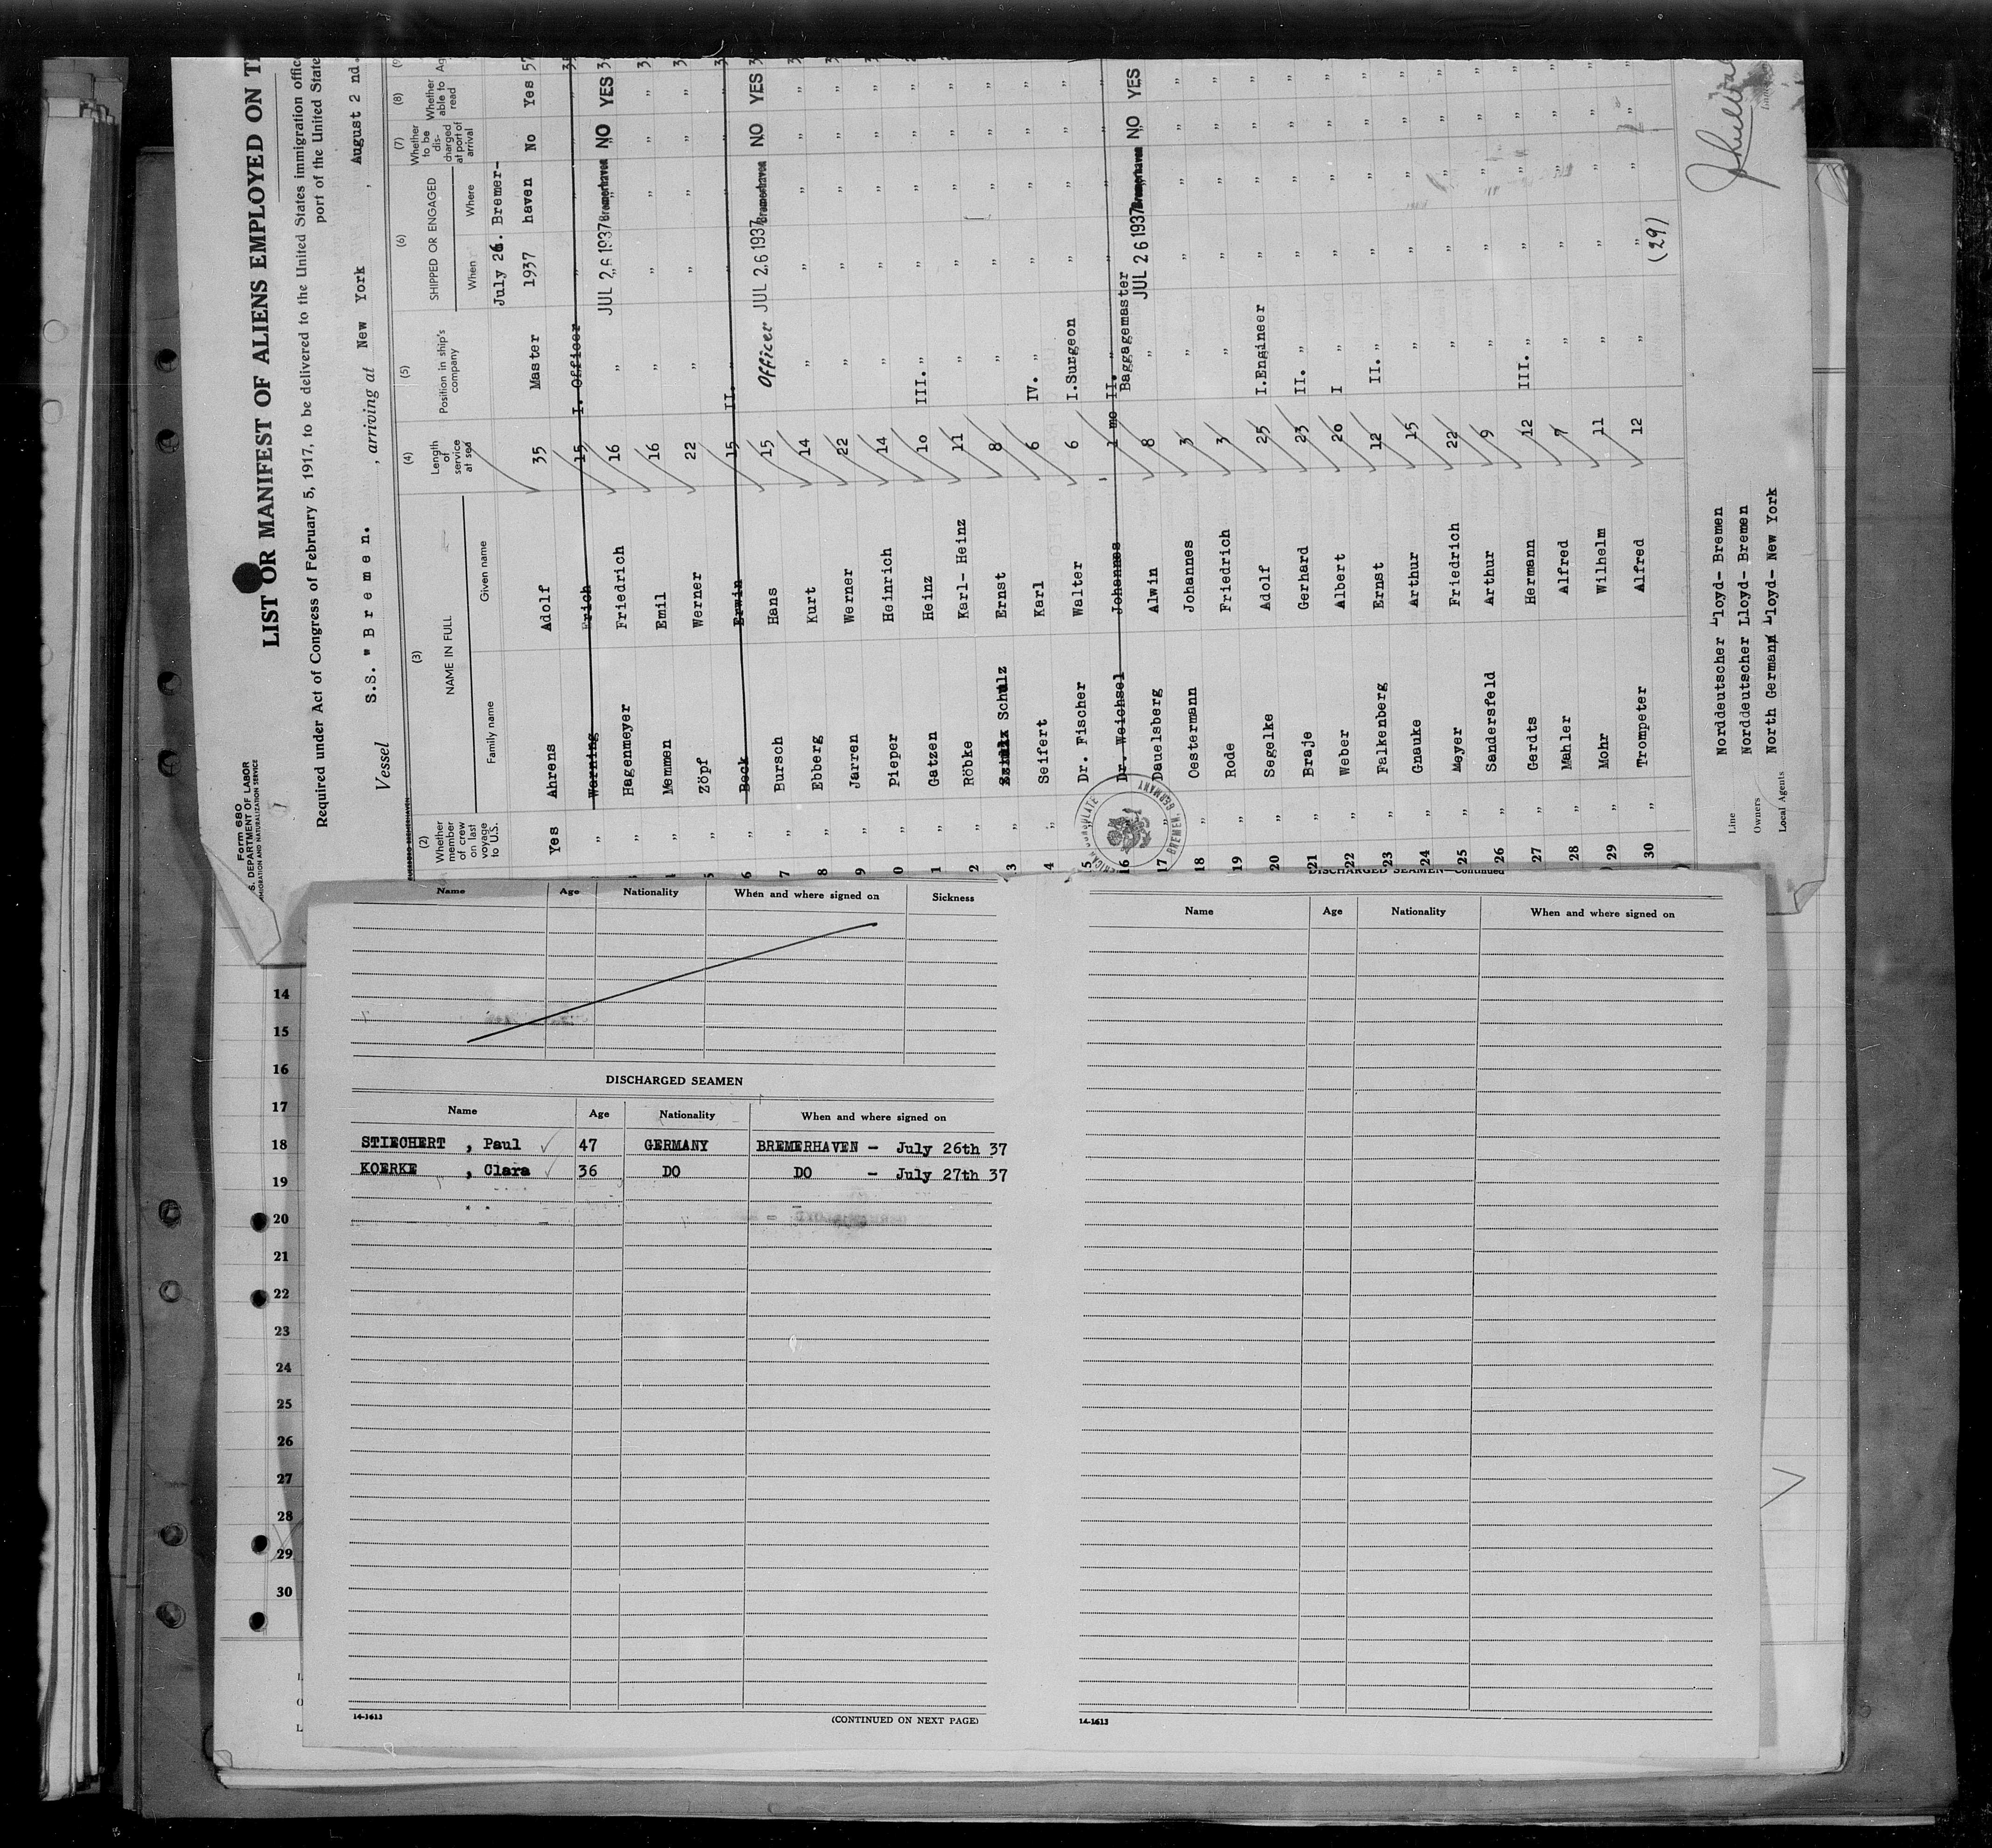 Form 680
S. DEPARTMENT OF LABOR
MIGRATION AND NATURALIZATION SERVICE
LIST OR MANIFEST OF ALIENS EMPLOYED ON T
Required under Act of Congress of February 5, 1917, to be delivered to the United States immigration office
port of the United State
Vessel S.S. " B r e m e n. , arriving at New York , August 2 nd.
(2) Whether member of crew on last voyage to U.S.
(3) NAME IN FULL
Family name Given name
(4) Length of service at sea
(5) Position in ship's company
(6) SHIPPED OR ENGAGED
When Where
(7) Whether to be discharged at port of arrival
(8) Whether able to read
July 26. Bremer-
Yes Ahrens Adolf 35 Master 1937 haven No Yes 57
" Warning Erich 15 I. Officer " " " "
" Hagenmeyer Friedrich 16 " JUL 26 1937 Bremerhaven NO YES
" Memmen Emil 16 " " " " "
5 " Zöpf Werner 22 " " " " "
6 " Beck Erwin 15 II. " " " " "
7 " Bursch Hans 15 Officer JUL 26 1937 Bremerhaven NO YES
8 " Ebberg Kurt 14 " " " " "
9 " Jarren Werner 22 " " " " "
0 " Pieper Heinrich 14 " " " " "
1 " Gatzen Heinz 10 III. " " " " "
2 " Röbke Karl- Heinz 11 " " " " "
3 " Schulz Ernst 8 " " " " "
4 " Seifert Karl 6 IV. " " " " "
15 Dr. Fischer Walter 6 I.Surgeon " " " "
16 Dr. Weichsel Johannes 1 mo II. " " " " "
17 " Dauelsberg Alwin 8 Baggagemaster " JUL 26 1937 Bremerhaven NO YES
18 " Oestermann Johannes 3 " " " " "
19 " Rode Friedrich 3 " " " " "
20 " Segelke Adolf 25 I.Engineer " " " "
21 " Braje Gerhard 23 II. " " " " "
22 " Weber Albert 20 I " " " "
23 " Falkenberg Ernst 12 II. " " " " "
24 " Gnauke Arthur 15 " " " " "
25 " Meyer Friedrich 22 " " " " "
26 " Sandersfeld Arthur 9 " " " " "
27 " Gerdts Hermann 12 III. " " " " "
28 " Mahler Alfred 7 " " " " "
29 " Mohr Wilhelm 11 " " " " "
30 " Trompeter Alfred 12 " " " " "
(29)
Line Norddeutscher Lloyd- Bremen
Owners Norddeutscher Lloyd- Bremen
Local Agents North German Lloyd- New York
BREMEN, GERMANY
Name Age Nationality When and where signed on Sickness
DISCHARGED SEAMEN
Name Age Nationality When and where signed on
STIECHERT , Paul 47 GERMANY BREMERHAVEN - July 26th 37
KOERKE , Clara 36 DO DO - July 27th 37
14-1613 (CONTINUED ON NEXT PAGE)
DISCHARGED SEAMEN—Continued
Name Age Nationality When and where signed on
14-1613
14
15
16
17
18
19
20
21
22
23
24
25
26
27
28
29
30